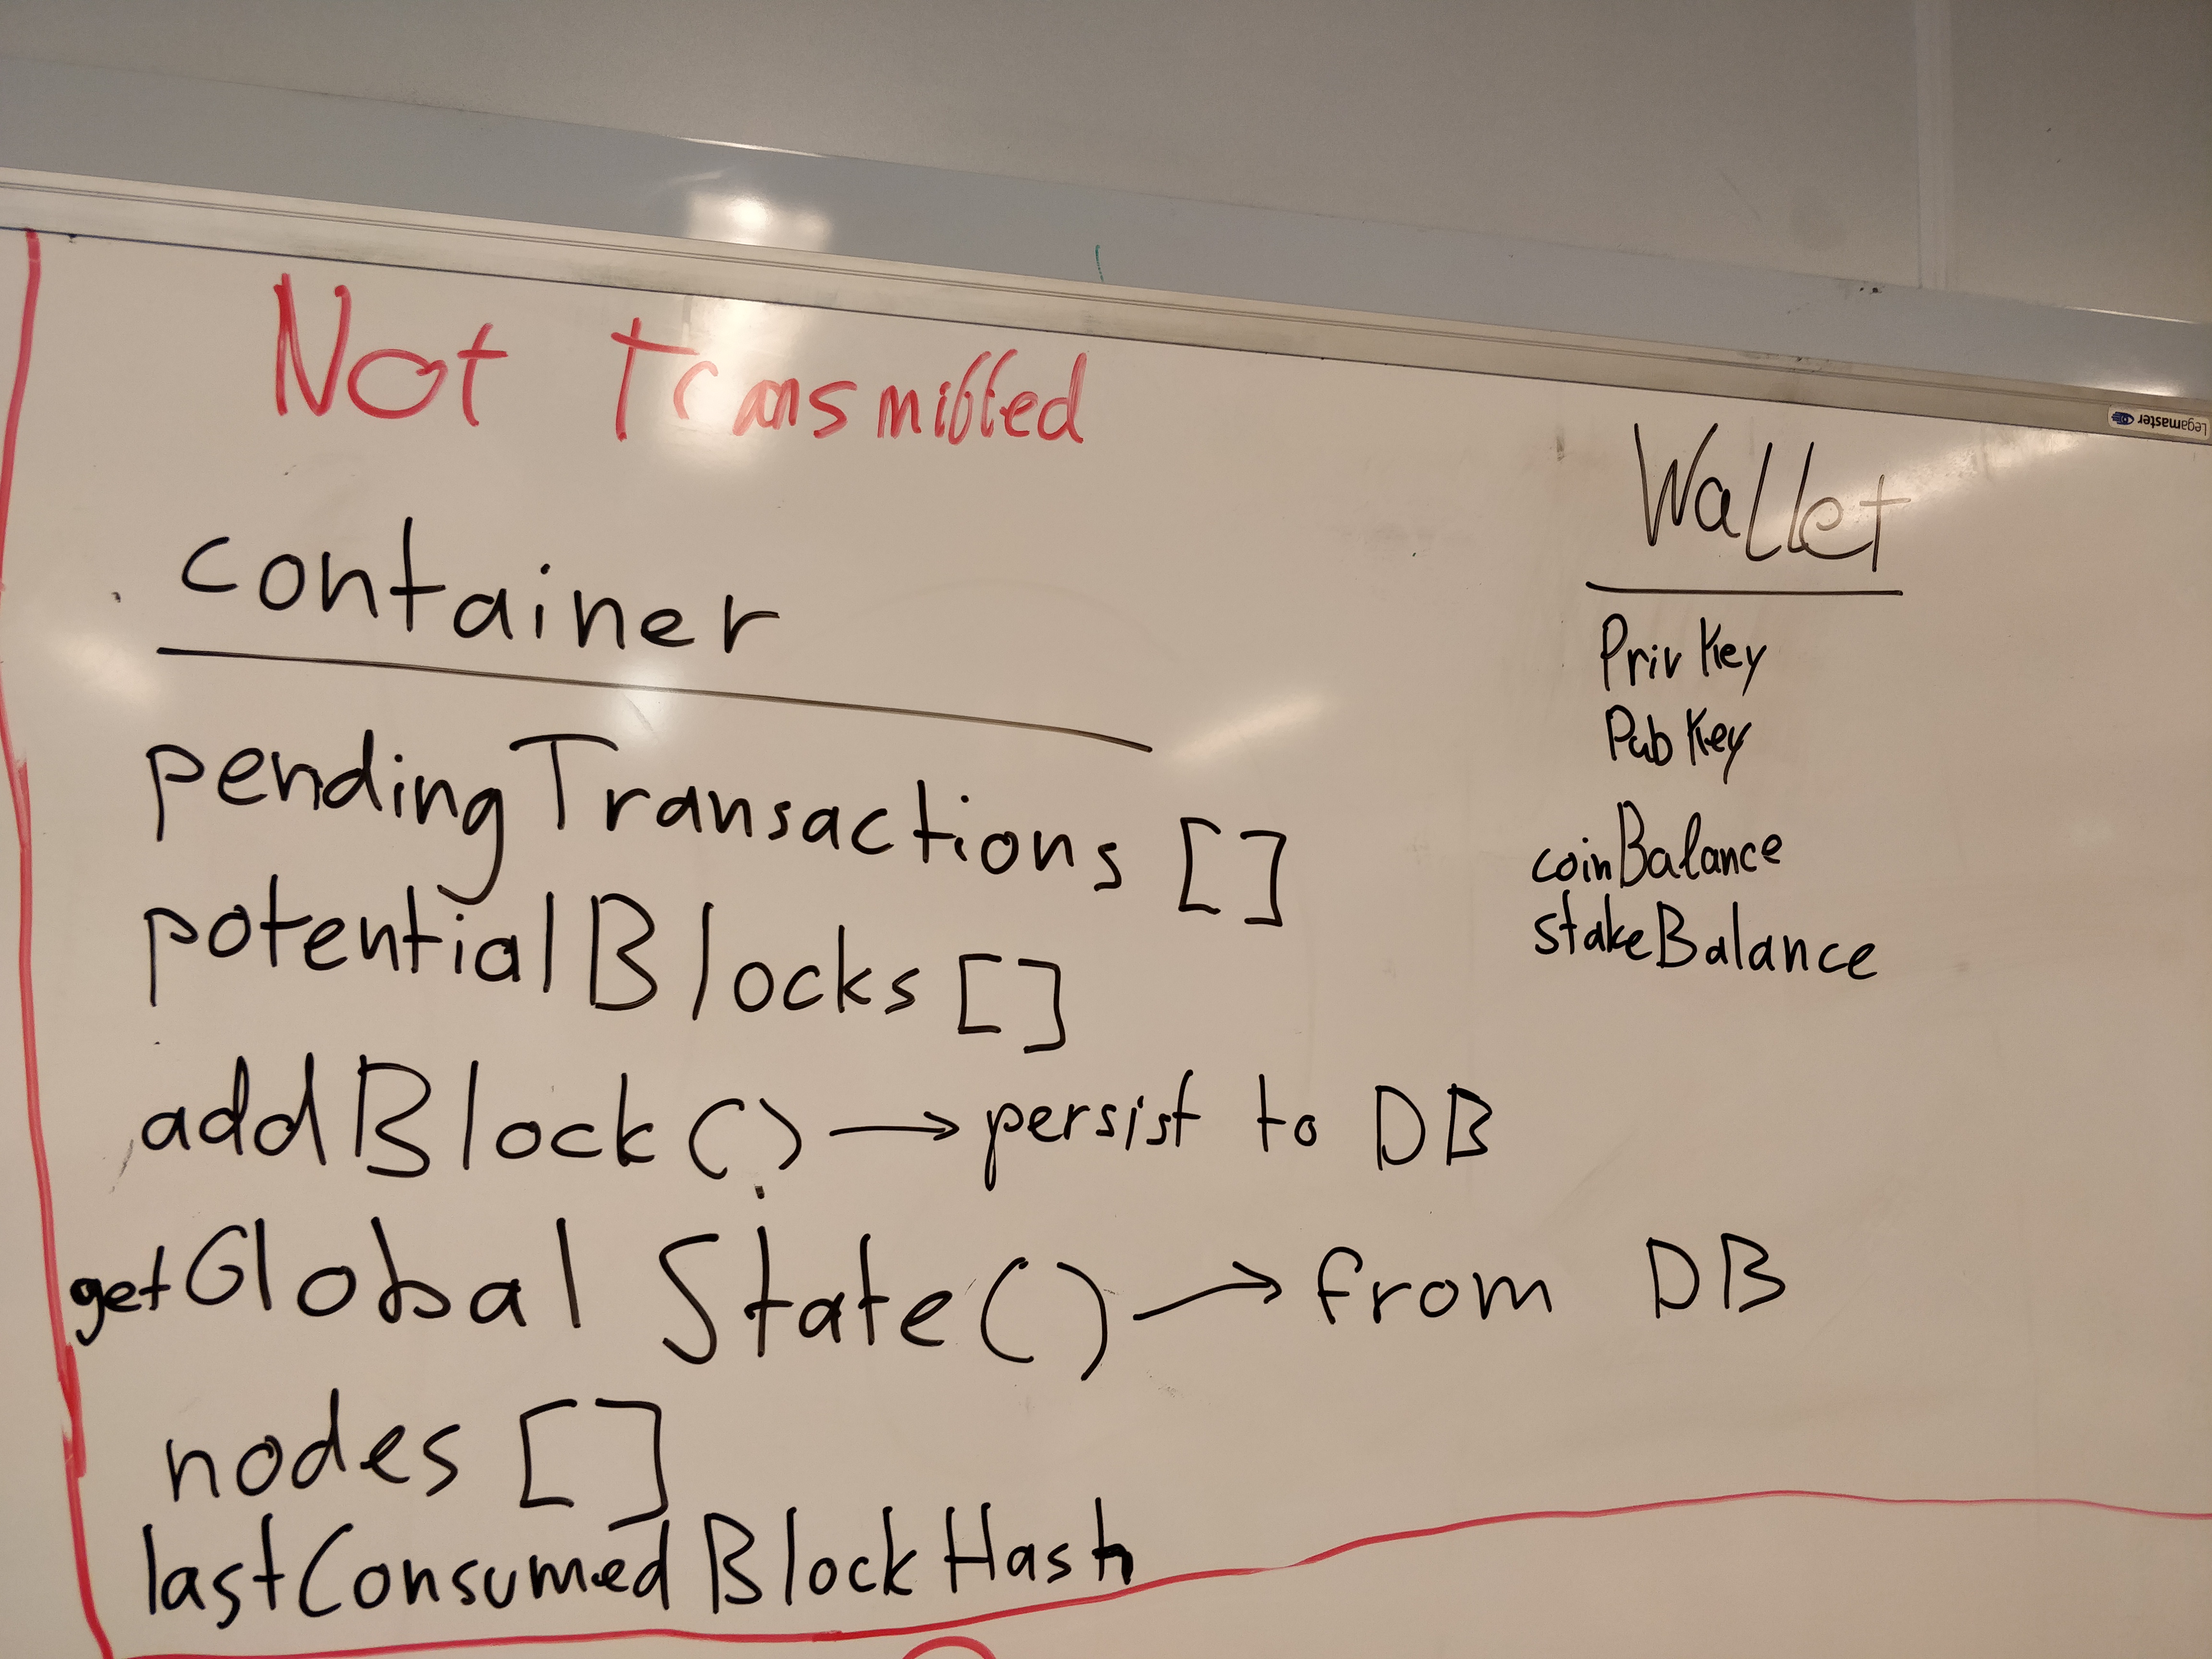 Not Transmitted
container
pendingTransactions []
potentialBlocks []
addBlock() → persist to DB
getGlobal State() → from DB
nodes []
lastConsumedBlockHash
Wallet
PrivKey
PubKey
coinBalance
stakeBalance
Legamaster